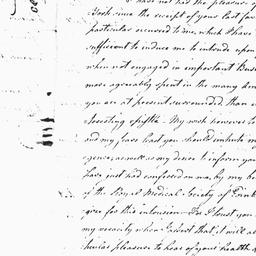 I have not had the pleasure of
York since the receipt of your last fav
particular occurred to me, which I have
sufficient to induce me to intrude upon
when not engaged in important Busi
more agreeably spent in the many
you are at present surrounded, than
My wish however to
and my fears least you should impute m
gence, as well as my desire to inform you
have just had conferred on me, by my
of the Royal Medical Society of
for this intrusion I trust you
my veracity when I assert that it will
pleasure to hear of your health